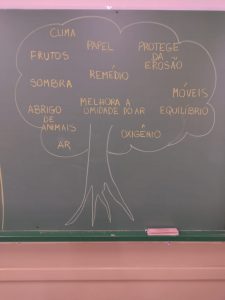 CLIMA
PAPEL
PROTEGE
DA
EROSÃO
FRUTOS
REMÉDIO
SOMBRA
MÓVEIS
MELHORA A
UMIDADE DO AR
EQUILÍBRIO
ABRIGO
DE
ANIMAIS
OXIGÊNIO
AR